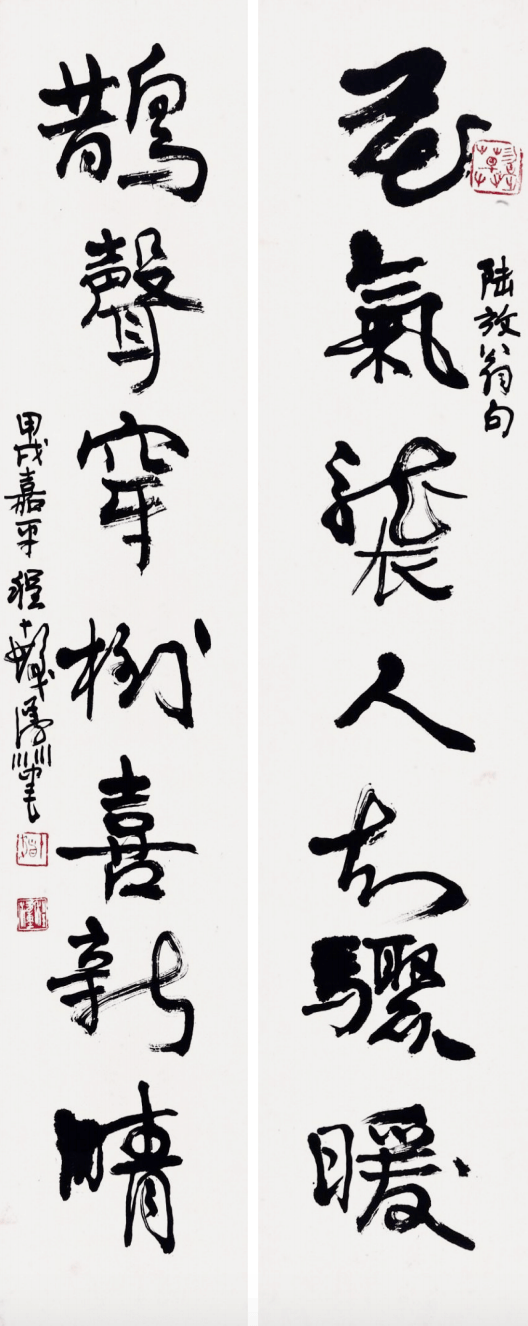 花氣襲人知驟暖
陸放翁句
鵲聲穿樹喜新晴
甲戌嘉平程十髮漫筆